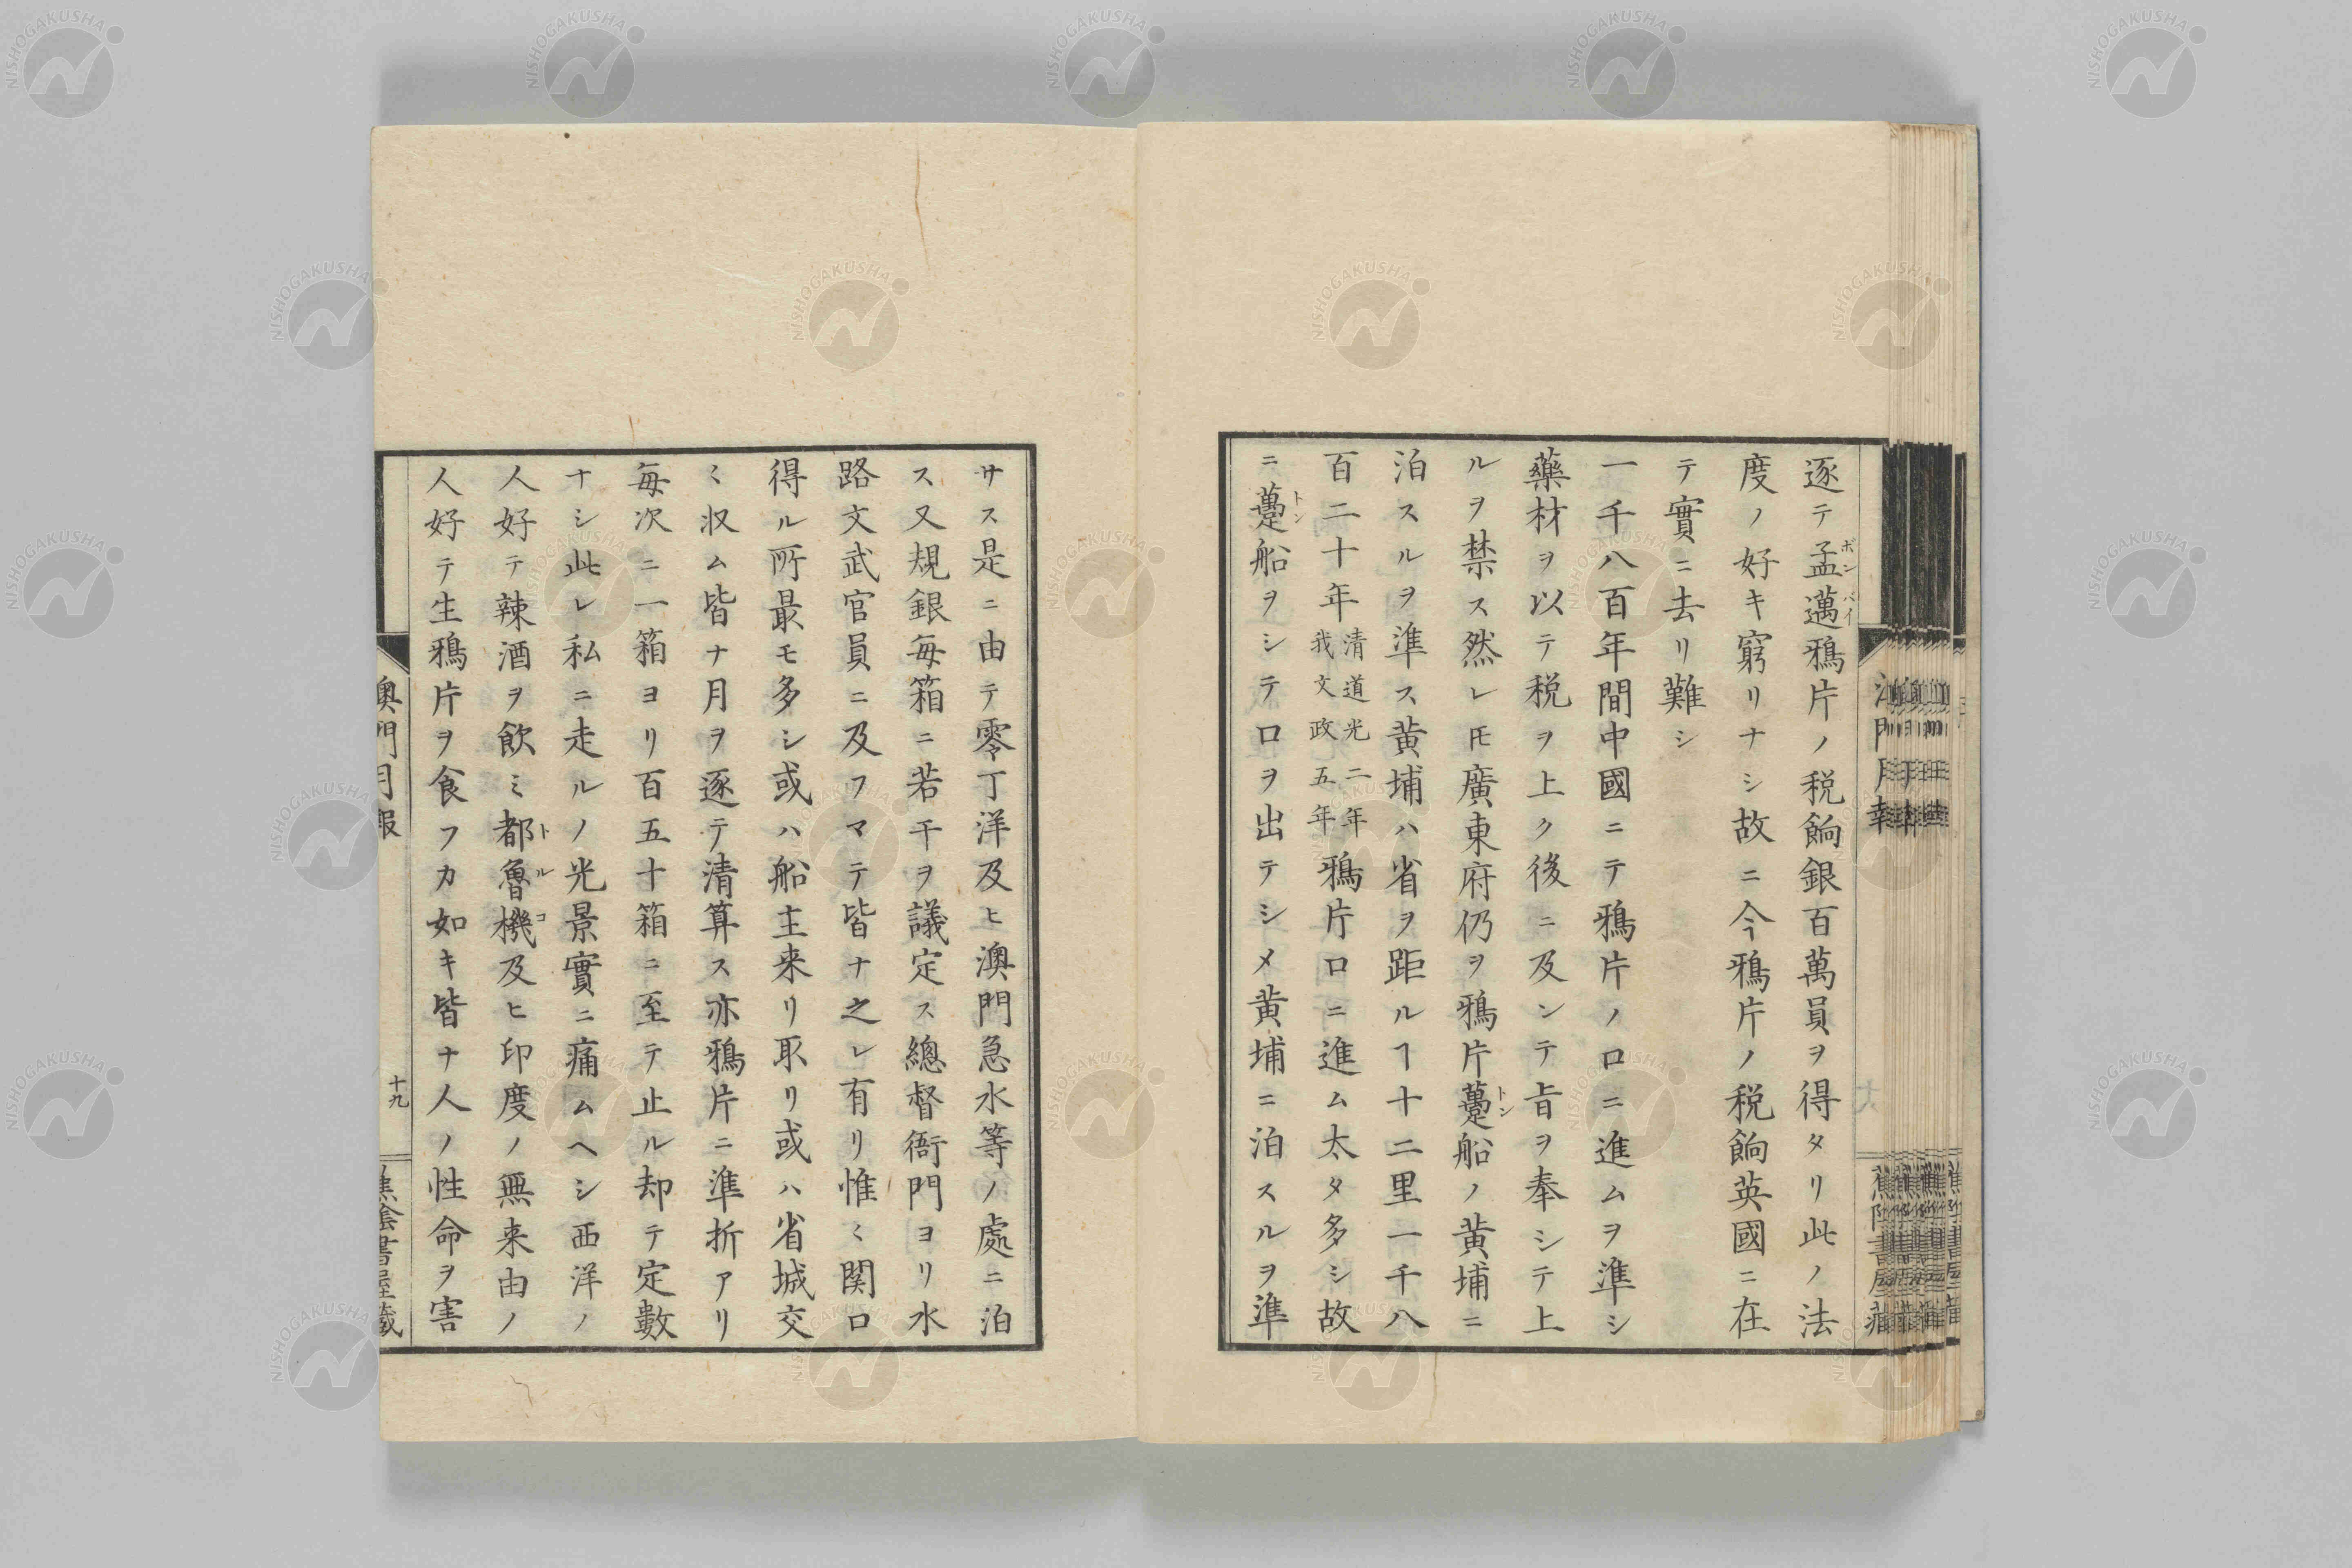 逐テ孟邁鴉片ノ税餉銀百萬員ヲ得タリ此ノ法
ボンバイ
度ノ好キ窮リナシ故ニ今鴉片ノ税餉英國ニ在
テ實ニ去リ難シ
一千八百年間中國ニテ鴉片ノ口ニ進ムヲ準シ
藥材ヲ以テ税ヲ上ク後ニ及ンテ旨ヲ奉シテ上
ルヲ禁ス然レ𪜈廣東府仍ヲ鴉片躉船ノ黄埔ニ
トン
泊スルヲ準ス黄埔ハ省ヲ距ルヿ十二里一千八
百二十年清道光二年我文政五年鴉片口ニ進ム太タ多シ故
ニ躉船ヲシテ口ヲ出テシメ黄埔ニ泊スルヲ準
トン
サス是ニ由テ零丁洋及ヒ澳門急水等ノ處ニ泊
ス又規銀毎箱ニ若干ヲ議定ス總督衙門ヨリ水
路文武官員ニ及フマテ皆ナ之レ有リ惟ミ関口
得ル所最モ多シ或ハ船主来リ取リ或ハ省城交
ミ収ム皆ナ月ヲ逐テ清算ス亦鴉片ニ準折アリ
毎次ニ一箱ヨリ百五十箱ニ至テ止ル却テ定數
ナシ此レ私ニ走ルノ光景實ニ痛ムヘシ西洋ノ
人好テ辣酒ヲ飲ミ都魯機及ヒ印度ノ無来由ノ
トルコ
人好テ生鴉片ヲ食フカ如キ皆ナ人ノ性命ヲ害
澳門月報
十九
蕉陰書屋藏
NISHOGAKUSHA